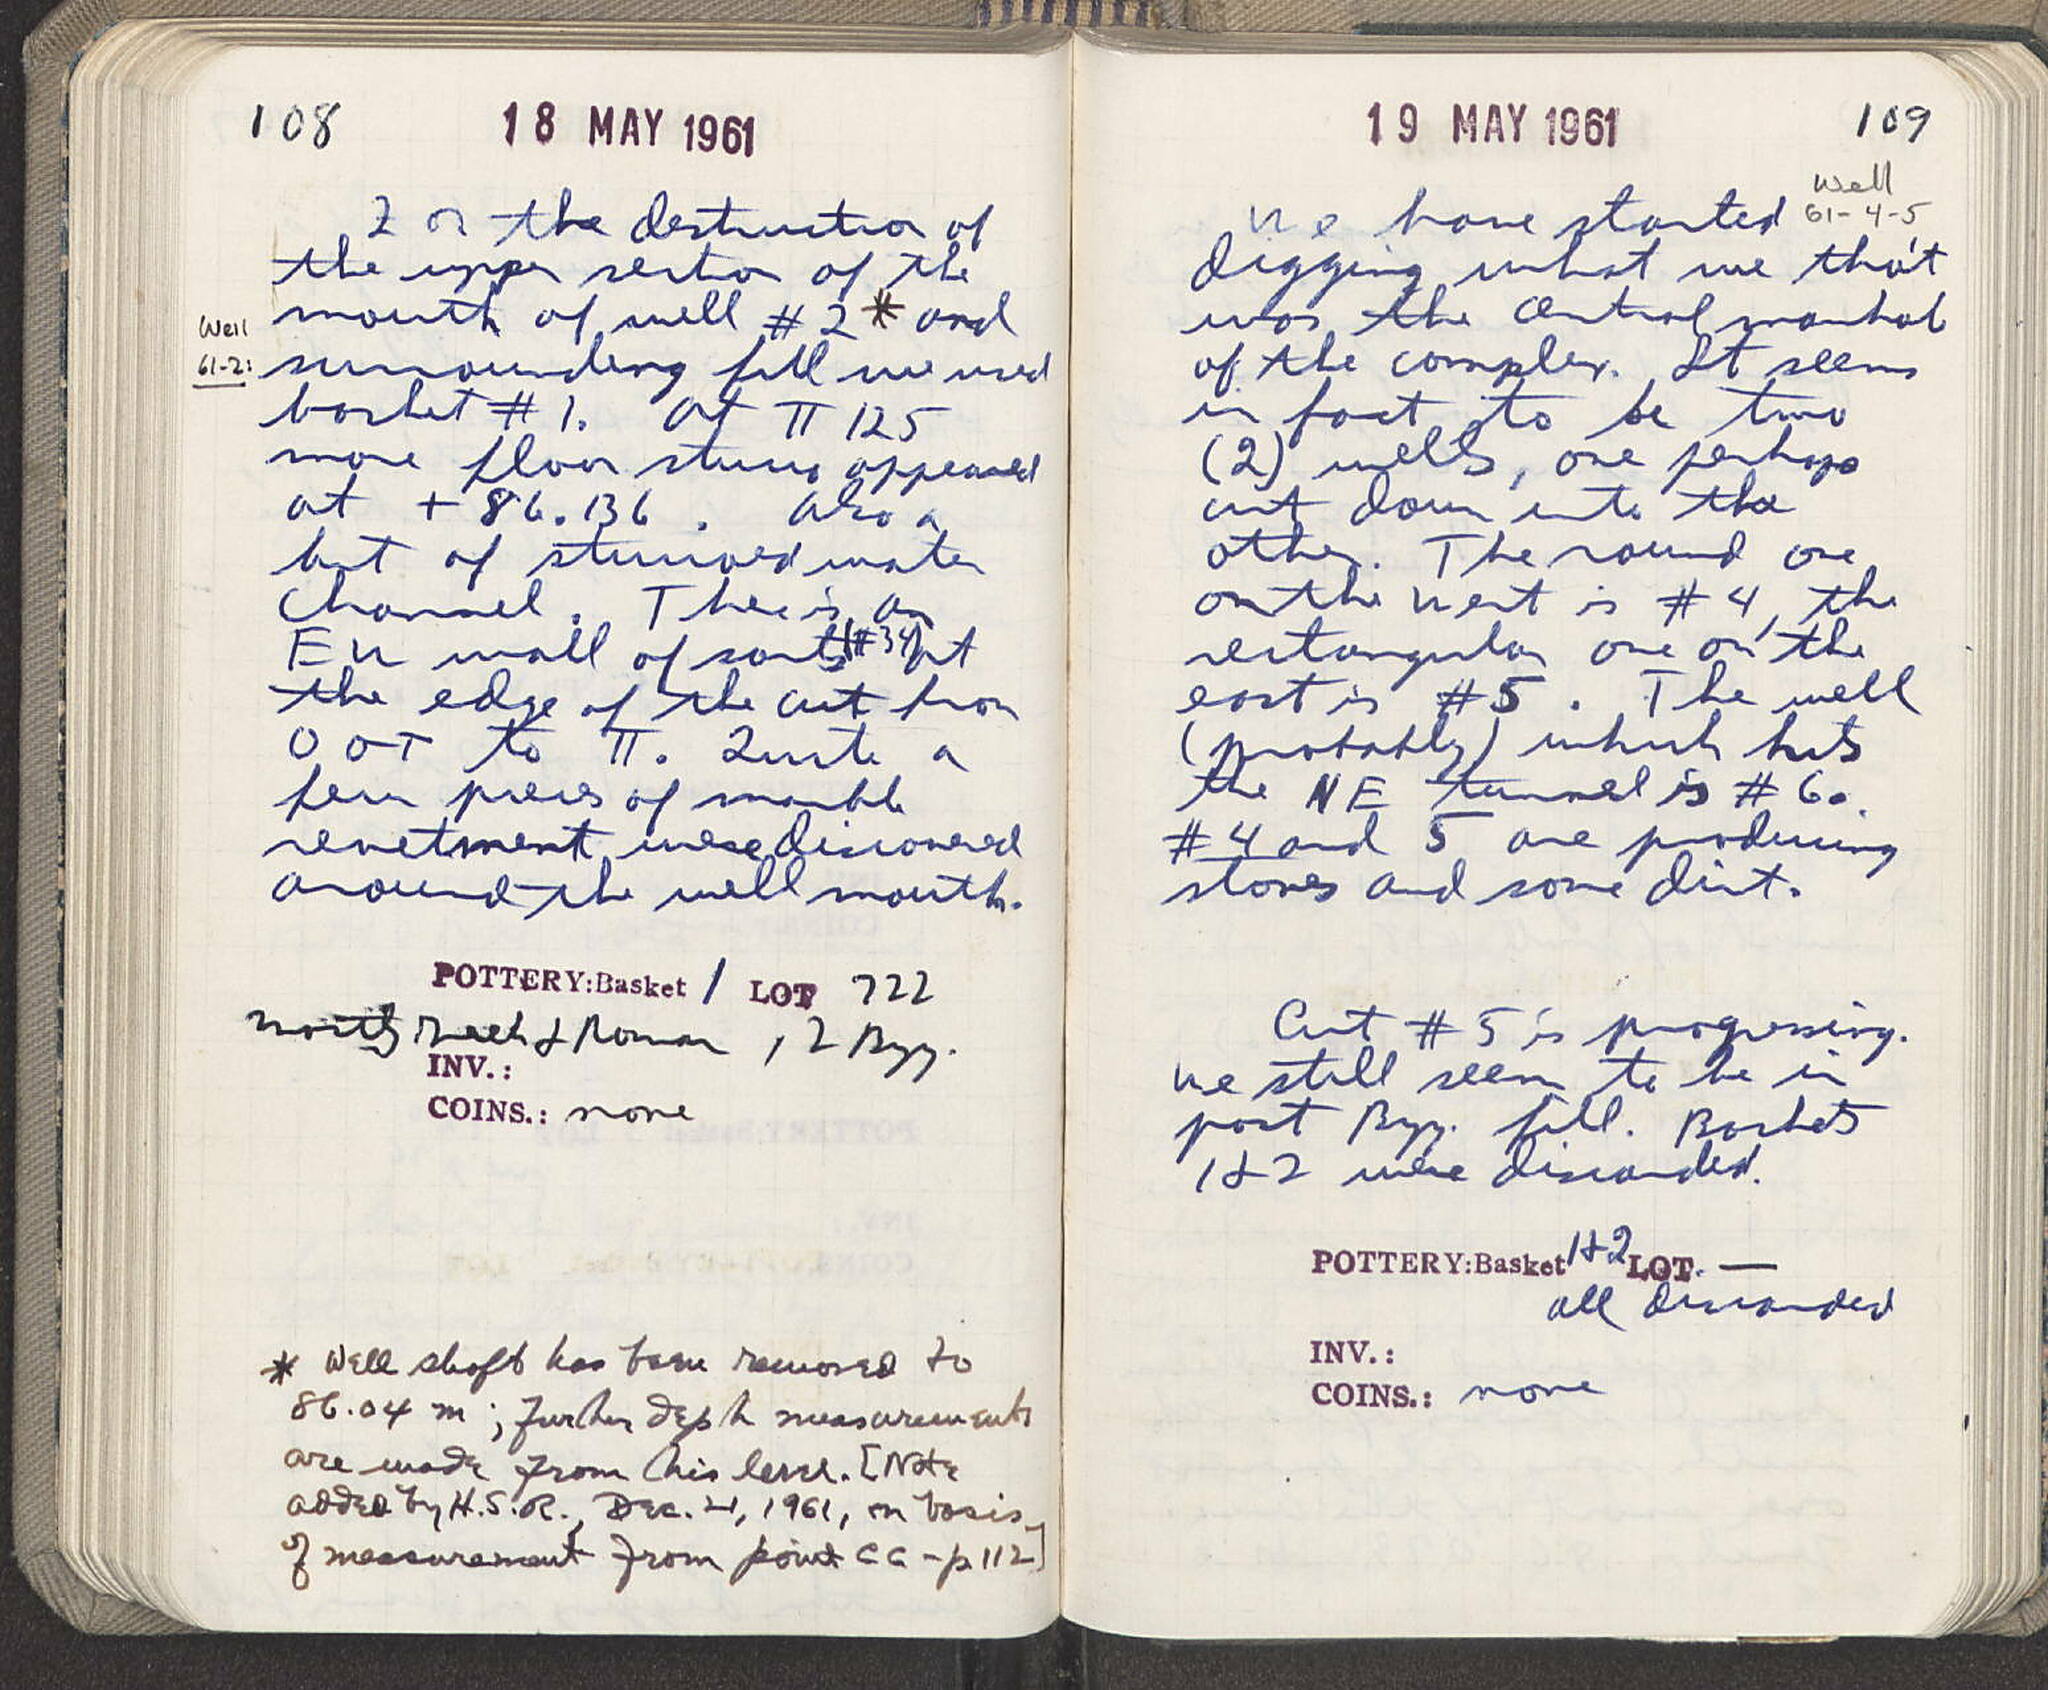 108
18 MAY 1961
For the destruction of
the upper section of the
mouth of well #2* and
Well
61-2:
surrounding fill we used
basket #1. At π 125
more floor stucco appeared
at + 86.136. Also a
bit of stuccoed water
channel. There is an
EW wall of sorts (#34) at
the edge of the cut from
to π. Quite a
few pieces of marble
revetment were discovered
around the well mouth.
POTTERY: Basket 1 LOT 722
mostly Greek & Roman, 2 Byz.
INV.:
COINS.: none
* Well shaft has been removed to
86.04 m; further depth measurements
are made from this level. [Note
added by H.S.R., Dec. 1961, on basis
of measurement from point - p 112]
19 MAY 1961
109
Well
61-4-5
We have started
digging what we tho't
was the central manhole
of the complex. It seems
in fact to be two
(2) wells, one perhaps
cut down into the
other. The round one
on the west is #4, the
rectangular one on the
east is #5. The well
(probably) which hits
the NE tunnel is #6.
#4 and 5 are producing
stones and some dirt.
Cut #5 is progressing.
We still seem to be in
post Byz. fill. Baskets
1&2 were discarded.
POTTERY: Basket 1&2 LOT. —
all discarded
INV.:
COINS.: none